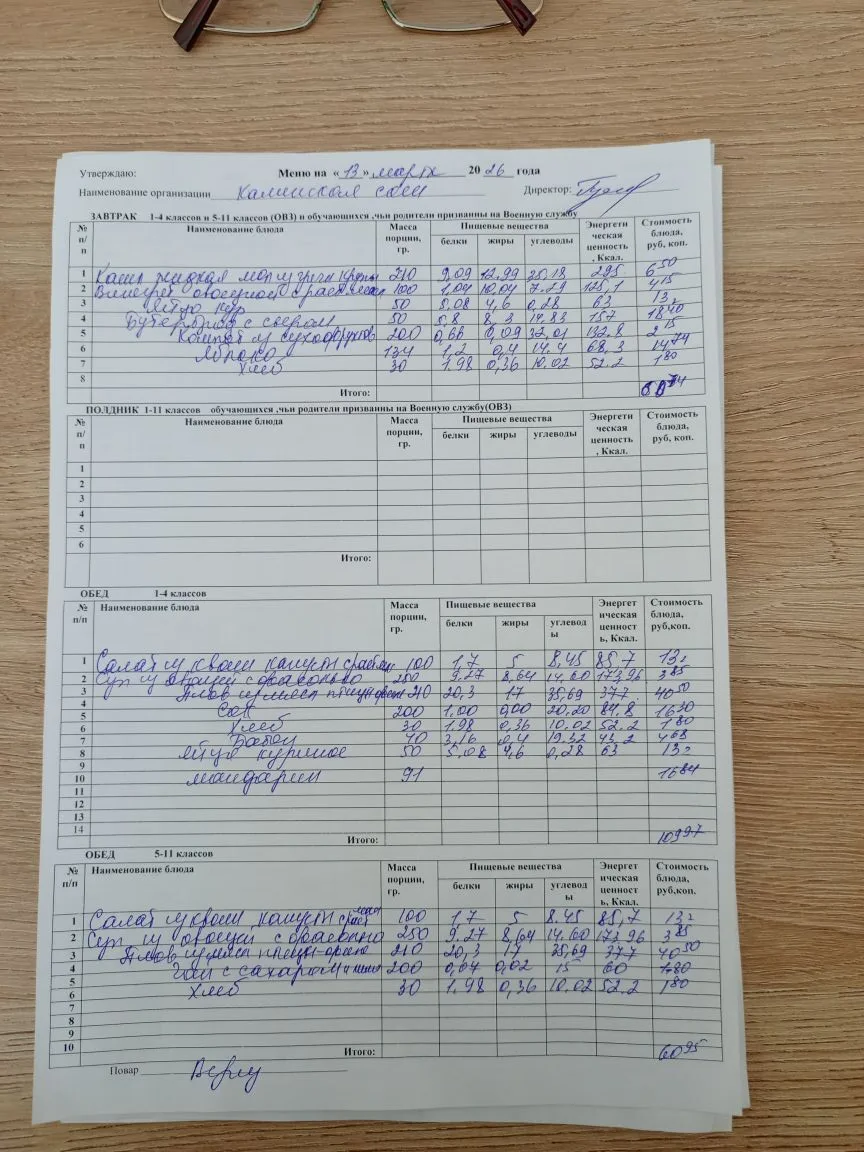 Утверждаю: Меню на «13» марта 2026 года
Наименование организации Каминская сош Директор:
ЗАВТРАК 1-4 классов и 5-11 классов (ОВЗ) и обучающихся ,чьи родители призванны на Военную службу
№ п/п Наименование блюда Масса порции, гр. Пищевые вещества белки жиры углеводы Энергетическая ценность, Ккал. Стоимость блюда, руб, коп.
1 Каша жидкая мол из гречн крупы 210 9,09 12,99 25,18 295 6 50
2 Винегрет овощной с раст 100 1,04 10,04 7.29 125,1 4 15
3 Яйцо кур 50 5,08 4,6 0,28 63 13,
4 Бутерброд с сыром 50 5,8 8,3 14.83 157 18 40
5 Компот из сухофруктов 200 0,66 0,09 32,01 132,8 2 15
6 Яблоко 134 1,2 0,4 14.4 68,3 14 74
7 Хлеб 30 1.98 0,36 10.02 52.2 1 80
8
Итого: 74
ПОЛДНИК 1-11 классов обучающихся ,чьи родители призванны на Военную службу(ОВЗ)
№ п/п Наименование блюда Масса порции, гр. Пищевые вещества белки жиры углеводы Энергетическая ценность, Ккал. Стоимость блюда, руб, коп.
1
2
3
4
5
6
Итого:
ОБЕД 1-4 классов
№ п/п Наименование блюда Масса порции, гр. Пищевые вещества белки жиры углеводы Энергетическая ценность, Ккал. Стоимость блюда, руб,коп.
1 Салат из кваш капусты с раст 100 1,7 5 8,45 85,7 13,
2 Суп из овощей с фасолью 250 9.27 8,64 14,60 173,96 3 85
3 Плов из мяса птицы 210 20,3 17 35,69 377 40 50
4
5 Сок 200 1,00 0,00 20,20 84.8 16 30
6 Хлеб 30 1.98 0,36 10.02 52.2 1 80
7 Батон 40 3,16 0,4 19.32 2 4 68
8 Яйцо куриное 50 5,08 4,6 0,28 63 13,
9
10 мандарин 91 16 84
11
12
13
14
Итого: 109 97
ОБЕД 5-11 классов
№ п/п Наименование блюда Масса порции, гр. Пищевые вещества белки жиры углеводы Энергетическая ценность, Ккал. Стоимость блюда, руб,коп.
1 Салат из кваш капусты с раст 100 1,7 5 8.45 85,7 13,
2 Суп из овощей с фасолью 250 9,27 8,64 14.60 173,96 3 85
3 Плов из мяса птицы 210 20,3 17 35,69 377 40 50
4 Чай с сахаром 200 0,04 0,02 15 60 1 80
5
6 Хлеб 30 1.98 0,36 10.02 52.2 1 80
7
8
9
10
Итого: 60 95
Повар